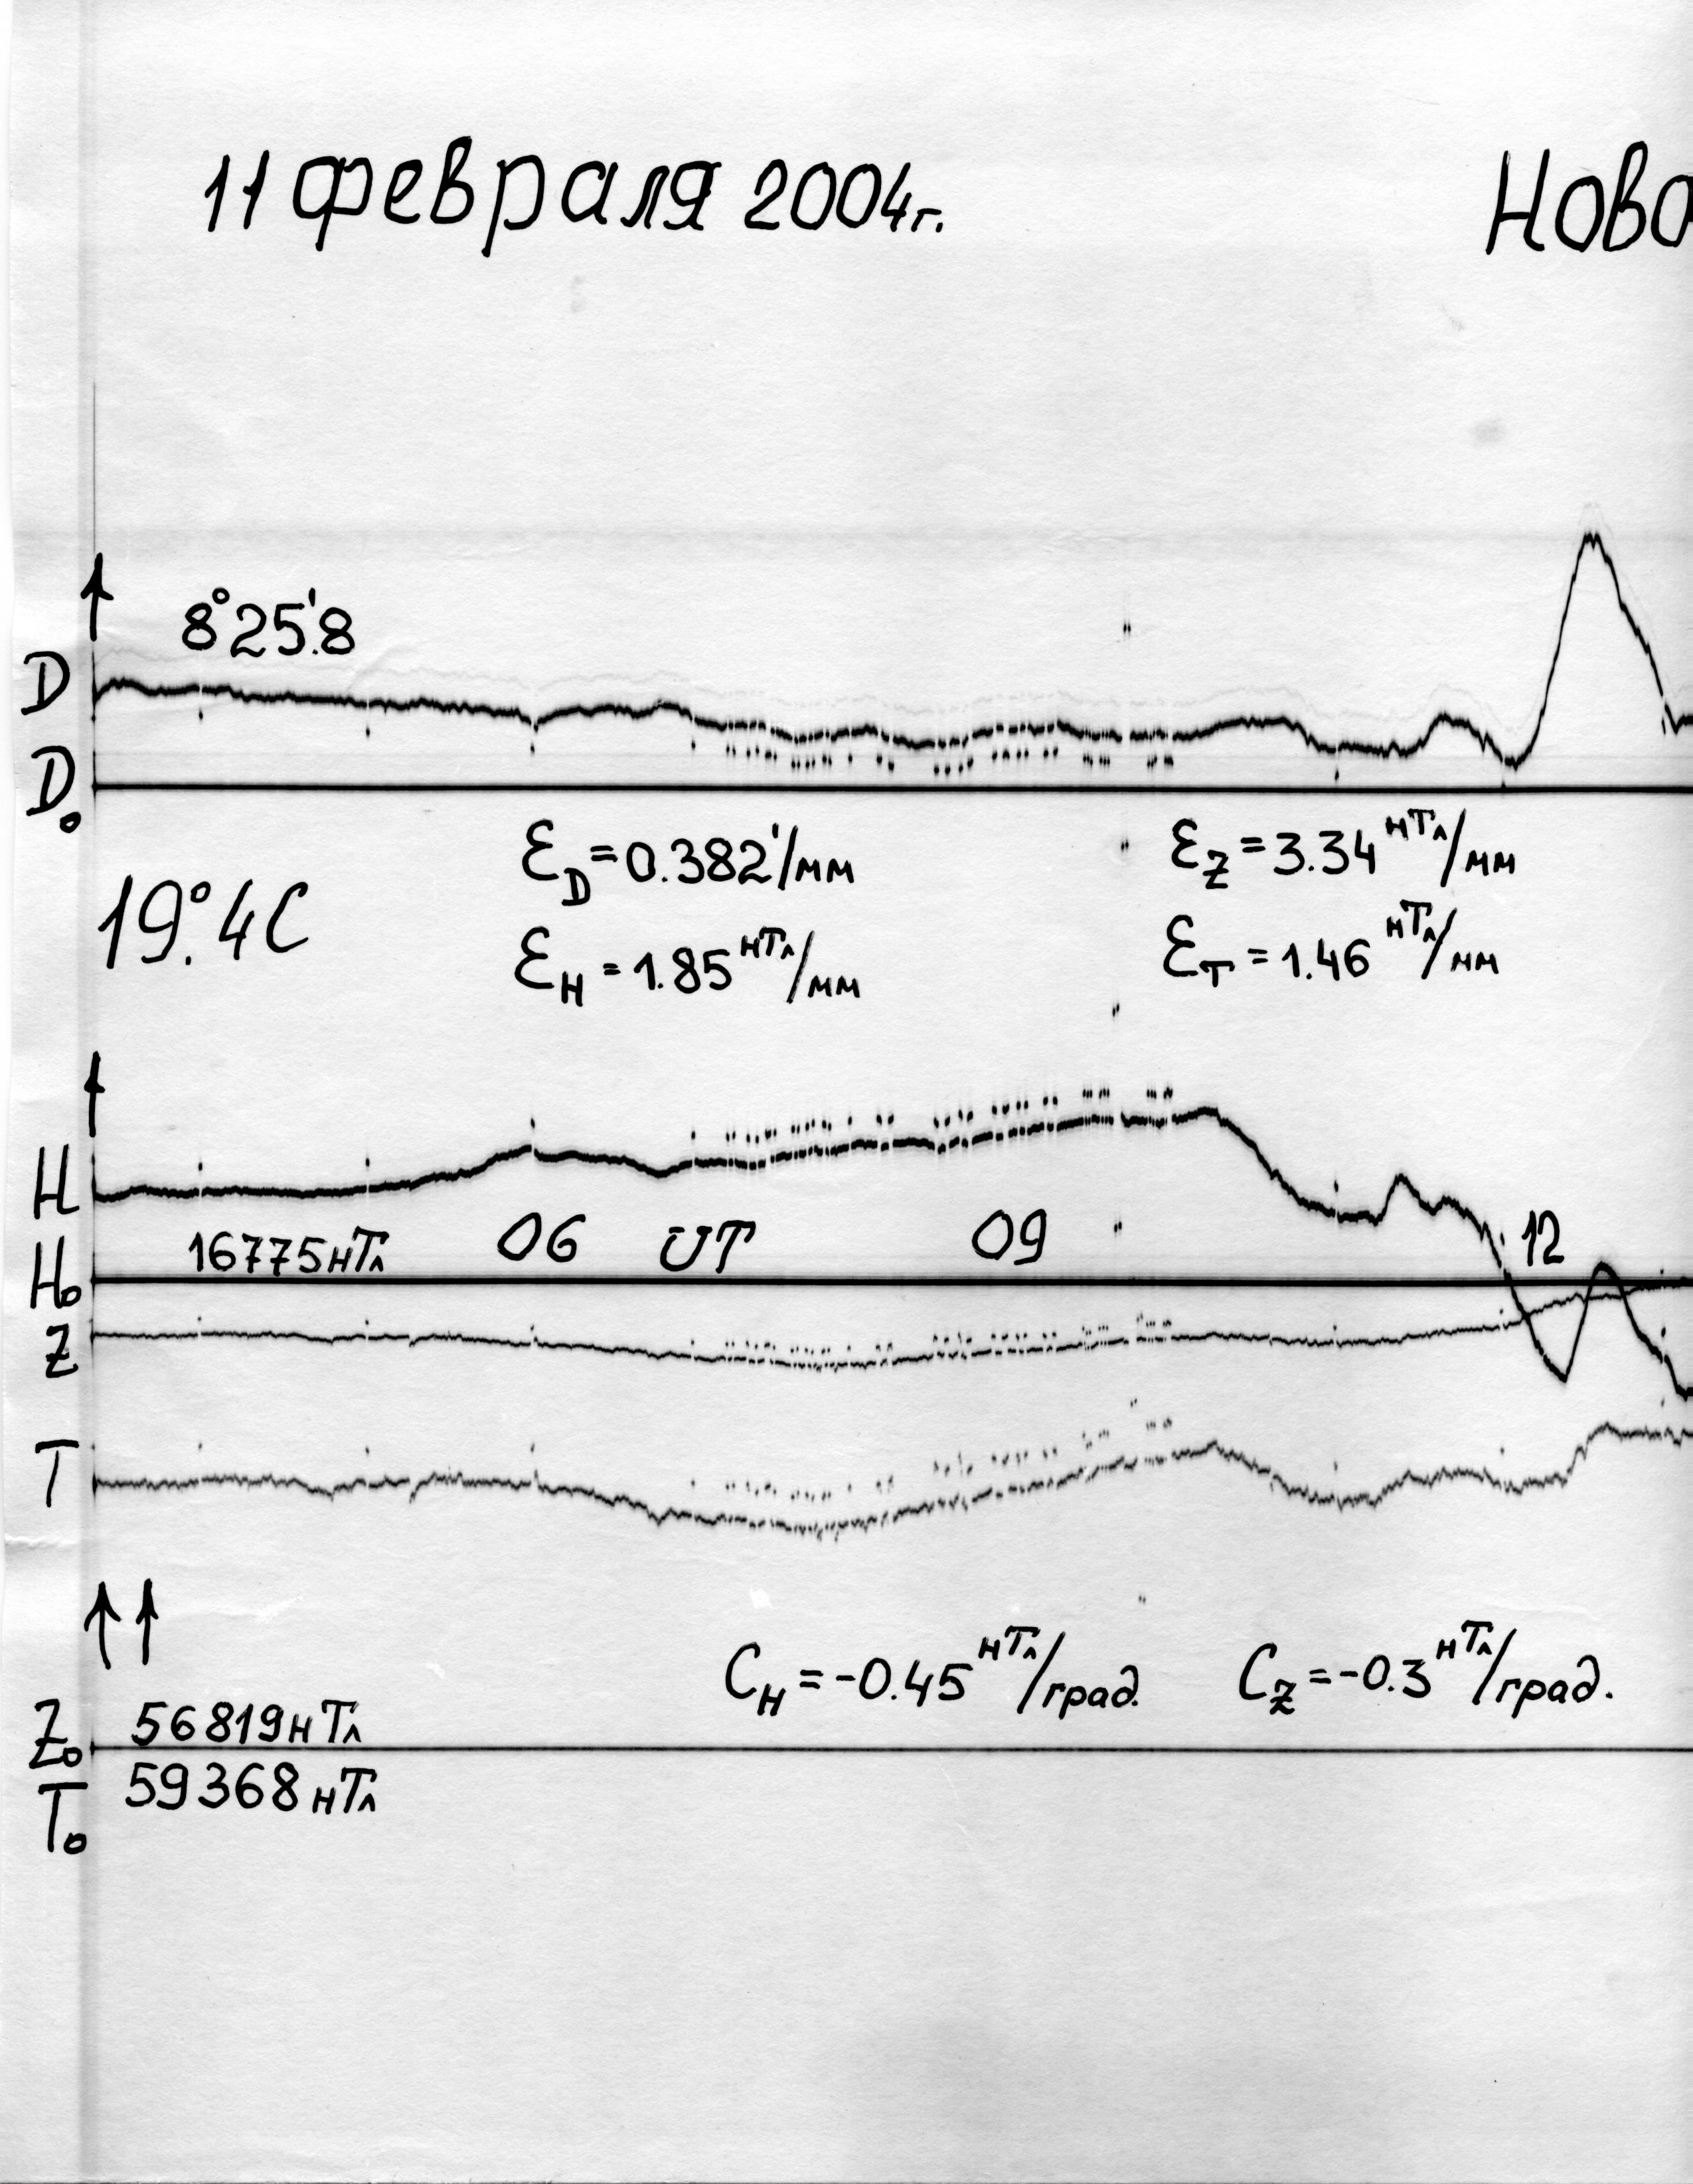 11 февраля 2004г.
Ново
8°25'.8
D
D₀
ε_D=0.382'/мм
ε_Z=3.34 нТл/мм
19°.4C
ε_H=1.85 нТл/мм
ε_T=1.46 нТл/мм
H
16775нТл
06
UT
09
12
H₀
Z
T
C_H=-0.45 нТл/град.
C_Z=-0.3 нТл/град.
Z₀
56819нТл
T₀
59368нТл